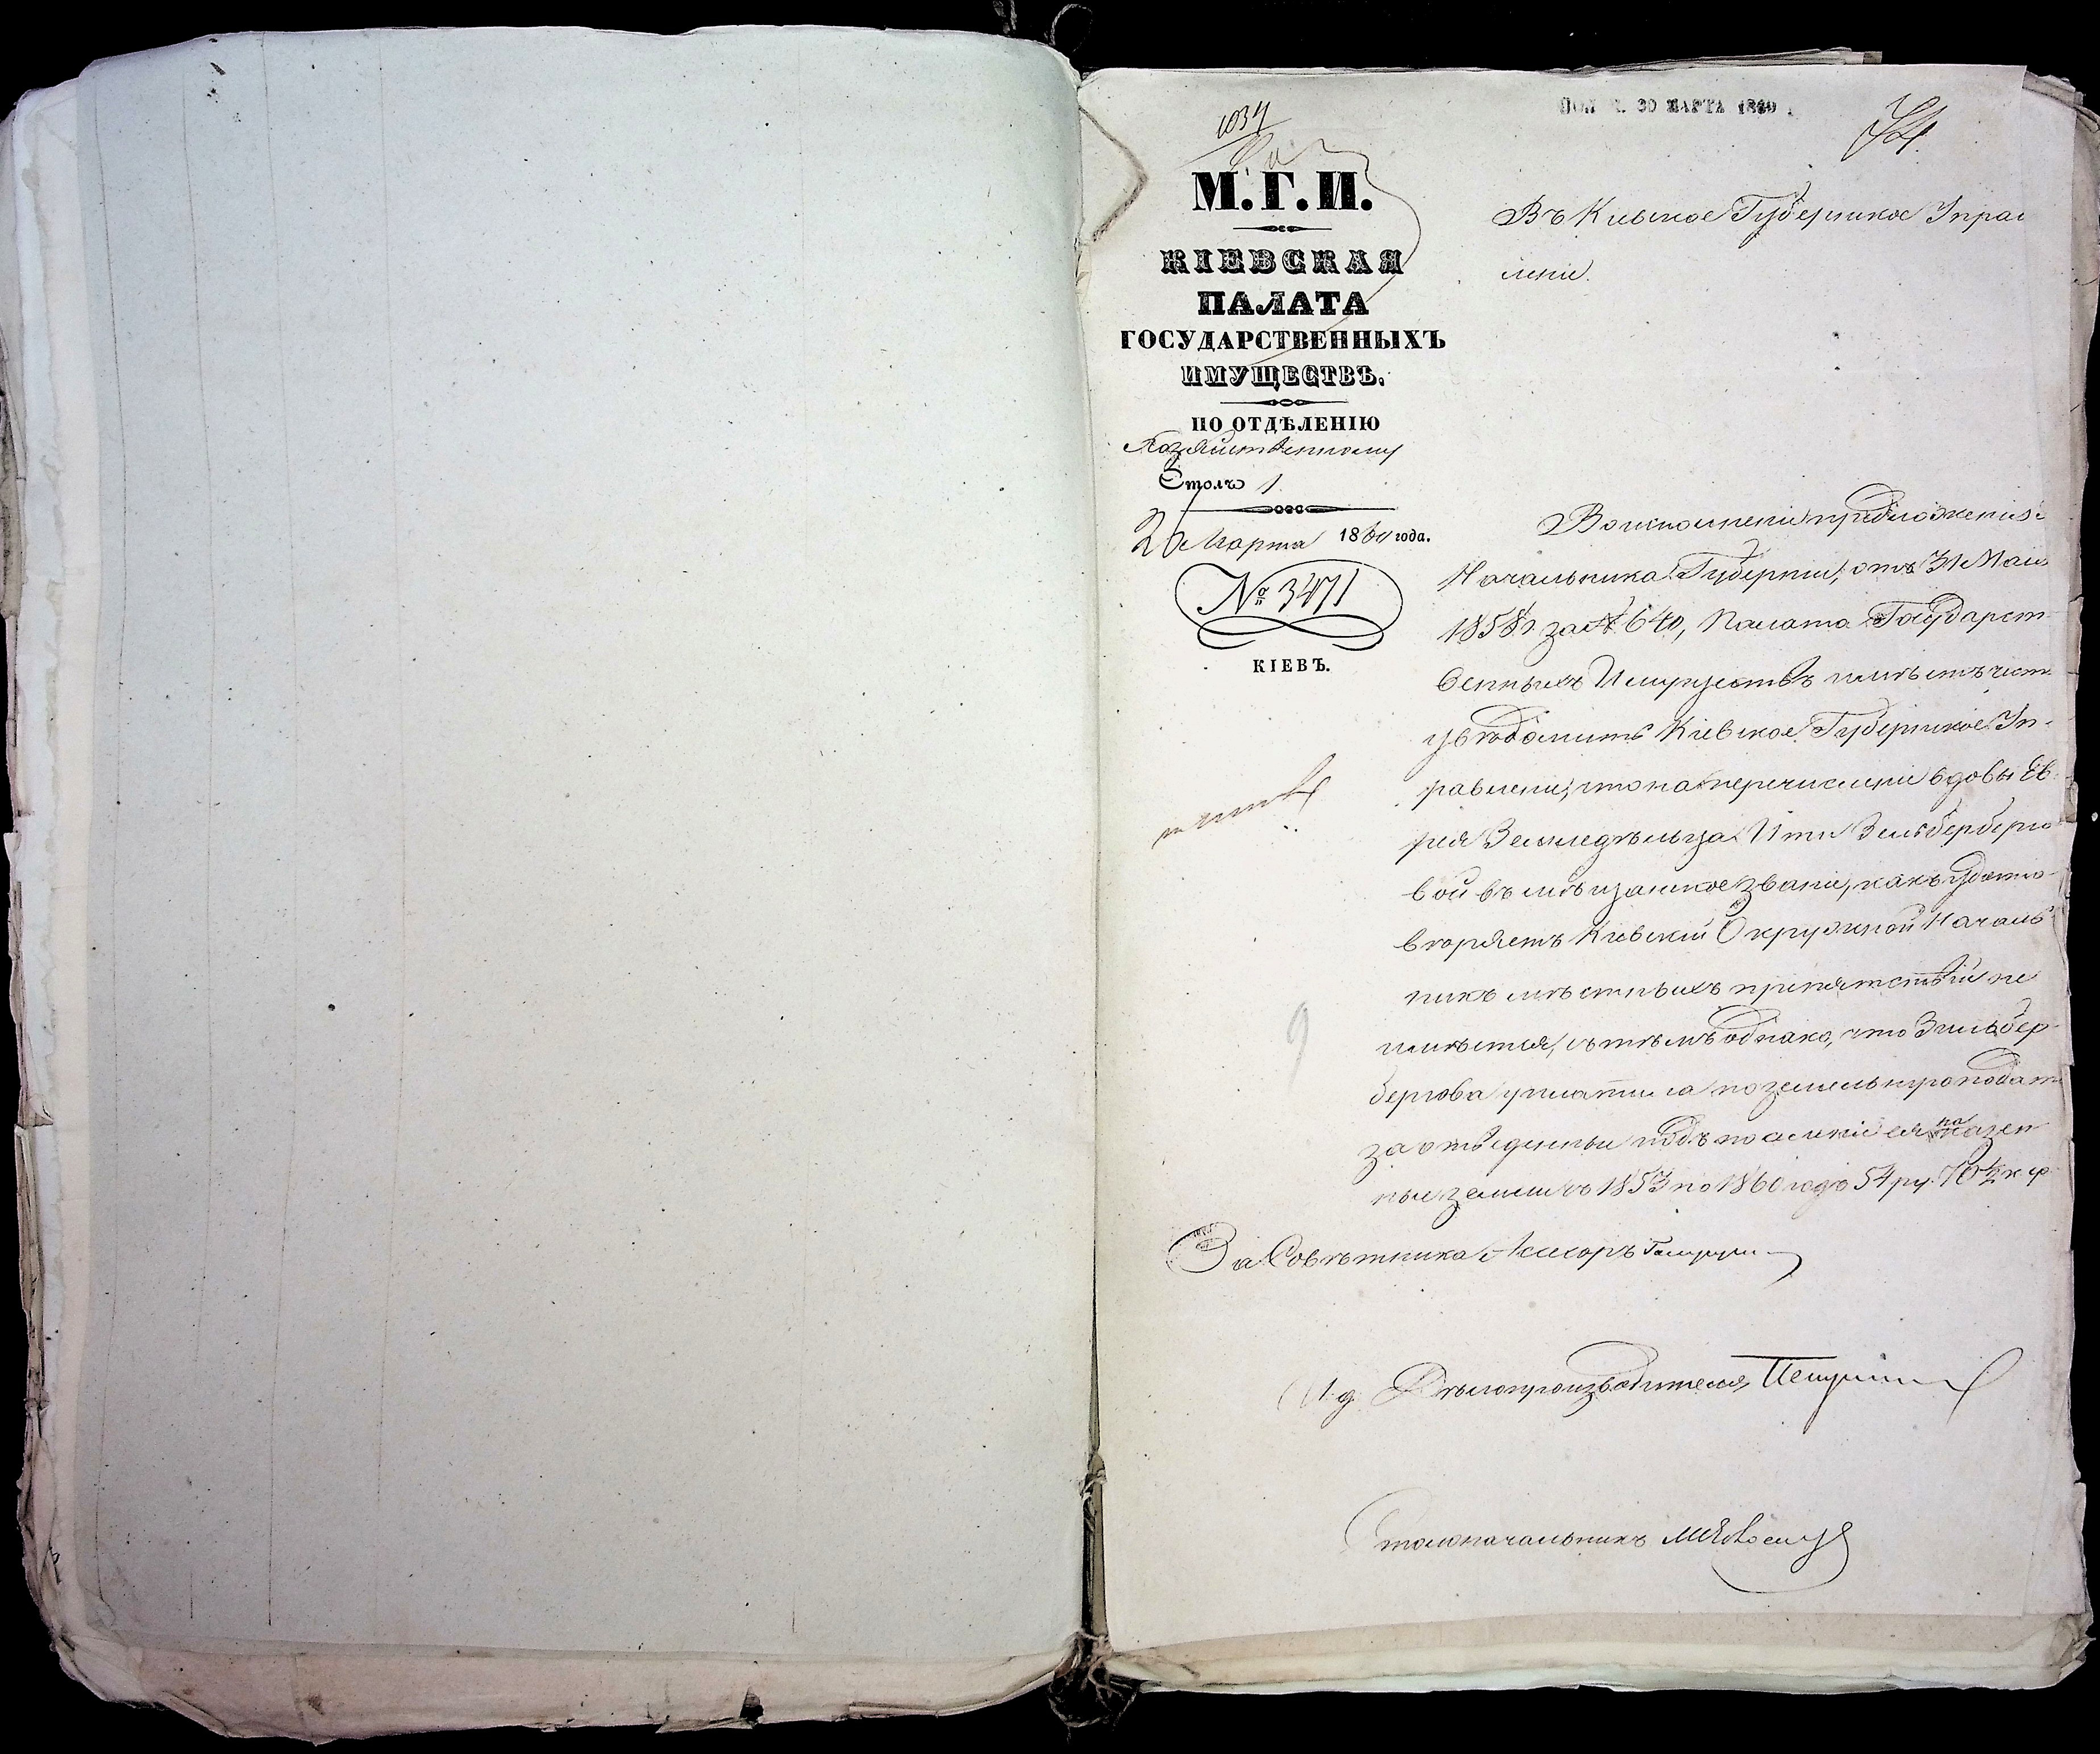 ПОЛ Ч. 30 МАРТА 1860
1034
74
М.Г.И.
КІЕВСКАЯ
ПАЛАТА
ГОСУДАРСТВЕННЫХЪ
ИМУЩЕСТВЪ.
ПО ОТДѢЛЕНІЮ
Хозяйственному
Столъ 1
Марта 1860 года.
№ 3471
КІЕВЪ.
Въ Кіевское Губернское Управ
леніе.
Во исполненіе предложенія
Начальника Губерніи, отъ 31 Мая
1858 г. за № 640, Палата Государст
венныхъ Имуществъ имѣетъ честь
увѣдомить Кіевское Губернское Уп-
равленіе, что на перечисленіе вдовы Ев
рея Земледѣльца Ити Зильберберго
вой въ мѣщанское званіе, какъ удосто-
вѣряетъ Кіевскій Окружной Началь
никъ мѣстныхъ препятствій не
имѣется, съ тѣмъ однако, что Зильбер-
бергова уплатила поземельную подать
за отведенныя подъ поселеніе ея казен
ныя земли съ 1853 по 1860 годъ 54 ру. 70 ½ к
За Совѣтника Ассесоръ
И. д. Дѣлопроизводителя
Столоначальникъ